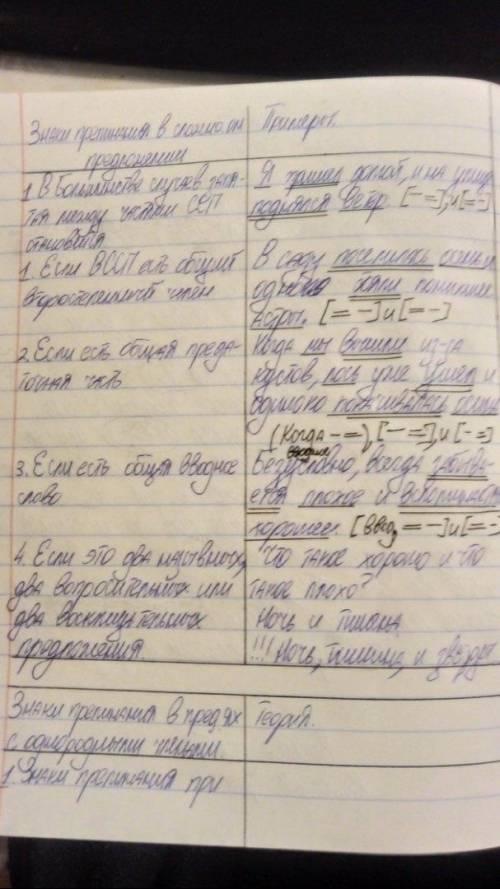 Знаки препинания в сложном
предложении
Примеры.
1. В большинстве случаев запя-
тая между частями ССП
становится
Я пришел домой, и на улице
поднялся ветер. [— =], и [= —]
1. Если в ССП есть общий
второстепенный член
В саду поселилась
одиноко поникшие
астры. [= —] и [= —]
2. Если есть общая прида-
точная часть
Когда мы вышли из-за
кустов, лось уже ушел и
одиноко покачивалась
(Когда — =), [— =], и [— =]
3. Если есть общая вводное
слово
вводное
Безусловно, всегда забыва-
ется плохое и вспоминается
хорошее. [Ввод, = —] и [= —]
4. Если это два назывных,
два вопросительных или
два восклицательных
предложения.
Что такое хорошо и что
такое плохо?
Ночь и тишина.
!!! Ночь, тишина, и звезды
Знаки препинания в предл-ях
с однородными членами.
Теория.
1. Знаки препинания при